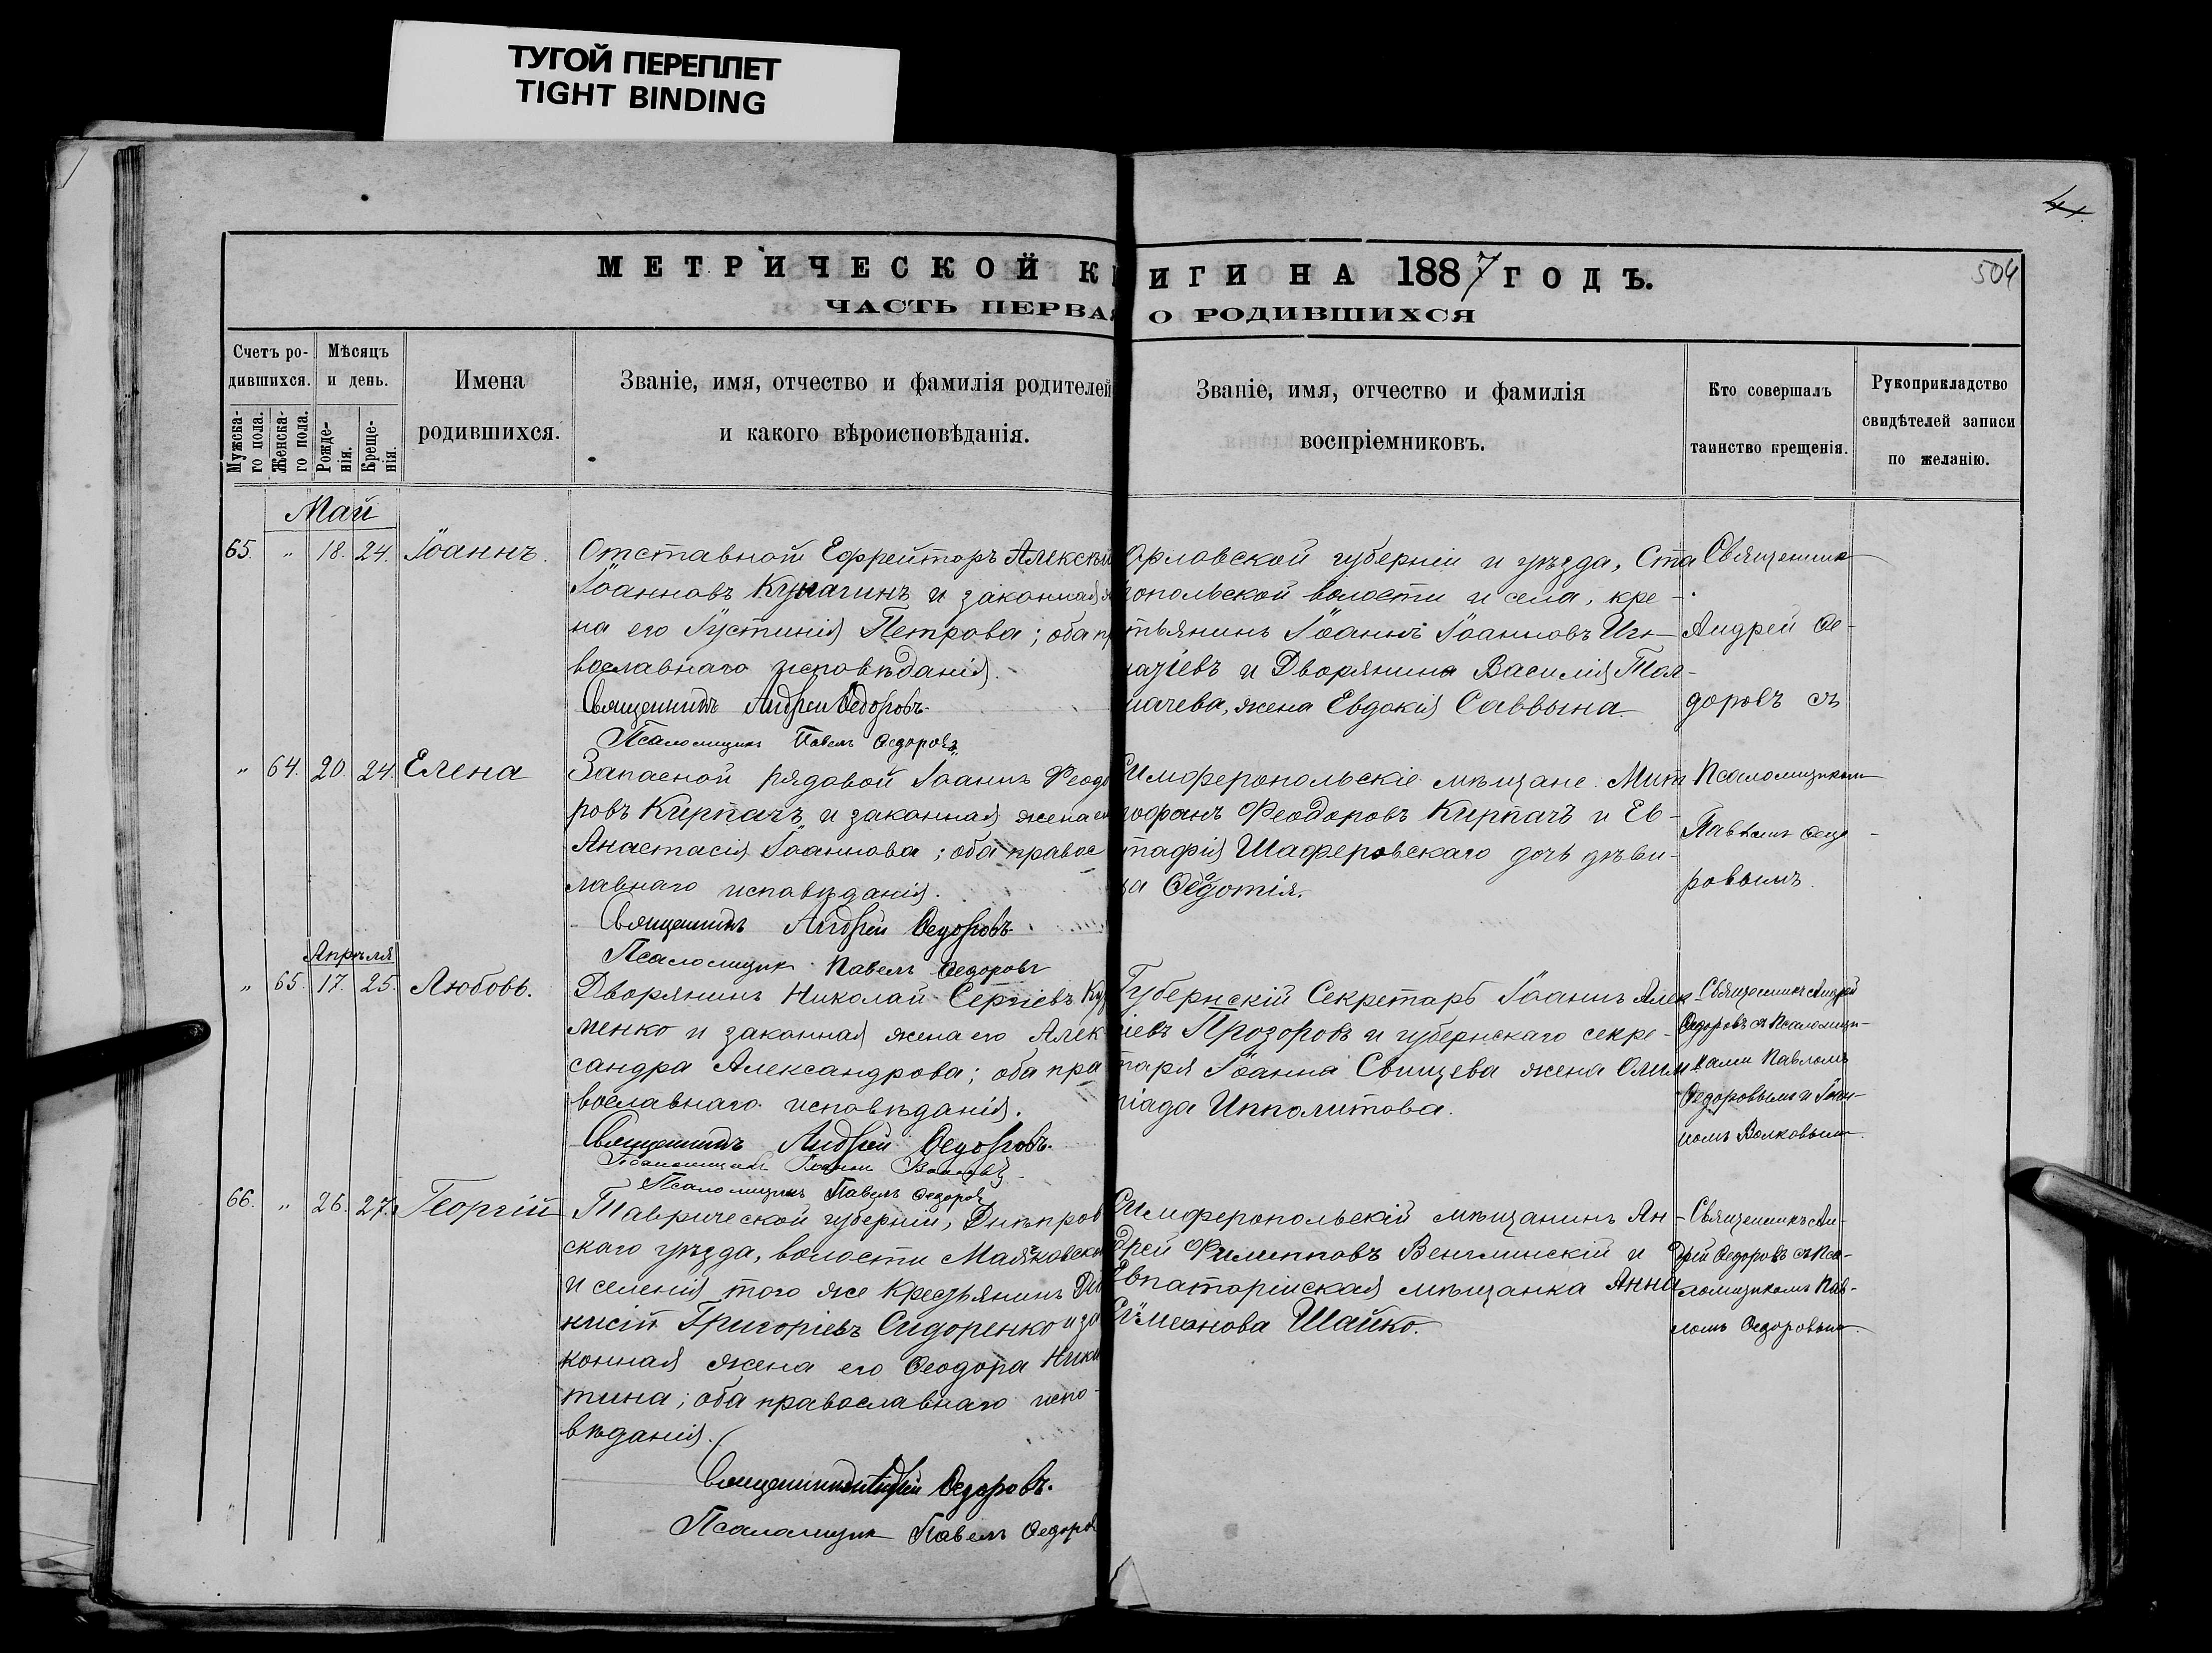 ТУГОЙ ПЕРЕПЛЕТ
TIGHT BINDING
504
МЕТРИЧЕСКОЙ К ИГИ НА 1887 ГОДЪ.
ЧАСТЬ ПЕРВАЯ О РОДИВШИХСЯ
Счетъ ро-
дившихся.
Мужска-
го пола.
Женска-
го пола.
Мѣсяцъ
и день.
Рожде-
нія.
Креще-
нія.
Имена
родившихся.
Званіе, имя, отчество и фамилія родителей
и какого вѣроисповѣданія.
Званіе, имя, отчество и фамилія
воспріемниковъ.
Кто совершалъ
таинство крещенія.
Рукоприкладство
свидѣтелей записи
по желанію.
Май
65. " 18. 24. Іоаннъ.
Отставной Ефрейторъ Алексѣй
Іоанновъ Кулагинъ и законная
на его Іустинія Петрова; оба пр
вославнаго исповѣданія.
Священникъ Андрей Ѳедоровъ.
Псаломщикъ Павелъ Ѳедоровъ
Орловской губерніи и уѣзда, Ста
опольской волости и села, кре-
тьянинъ Іоаннъ Іоанновъ Иг-
натіевъ и Дворянина Василія Тол-
мачева, жена Евдокія Саввына.
Священникъ
Андрей Ѳе-
доровъ съ
" 64. 20. 24. Елена
Запасной рядовой Іоаннъ Феодо
ровъ Кирпачъ и законная жена ег
Анастасія Іоаннова; оба правос
лавнаго исповѣданія.
Священникъ Андрей Ѳедоровъ
Псаломщик Павелъ Ѳедоровъ
Симферопольскіе мѣщане Мит
рофанъ Феодоровъ Кирпачъ и Ев-
тафія Шаферовскаго дочь дѣви-
ца Ѳедотія.
Псаломщикомъ
Павломъ Ѳедо-
ровымъ.
Апрѣля
" 65. 17. 25. Любовь.
Дворянинъ Николай Сергіевъ Куз
менко и законная жена его Алек
сандра Александрова; оба пра
вославнаго исповѣданія.
Священникъ Андрей Ѳедоровъ.
Псаломщикъ Іоаннъ Волковъ
Псаломщикъ Павелъ Ѳедоровъ
Губернскій Секретарь Іоаннъ Алек-
іевъ Прозоровъ и губернскаго секре-
таря Іоанна Свищева жена Олим
піада Ипполитова.
Священникъ Андрей
Ѳедоровъ съ Псаломщи-
ками Павломъ
Ѳедоровымъ и Іоан-
номъ Волковымъ.
66. " 26. 27. Георгій
Таврической губерніи, Днѣпров
скаго уѣзда, волости Маячковско
и селенія того же Крестьянинъ Діо
нисій Григоріевъ Сидоренко и за
конная жена его Ѳеодора Ники
тина; оба православнаго испо-
вѣданія.
Священникъ Андрей Ѳедоровъ.
Псаломщик Павелъ Ѳедоров
Симферопольскій мѣщанинъ Ан-
дрей Филипповъ Венглинскій и
Евпаторійская мѣщанка Анна
Шайко.
Священникъ Ан-
дрей Ѳедоровъ съ Пса-
ломщикомъ Пав-
ломъ Ѳедоровымъ.